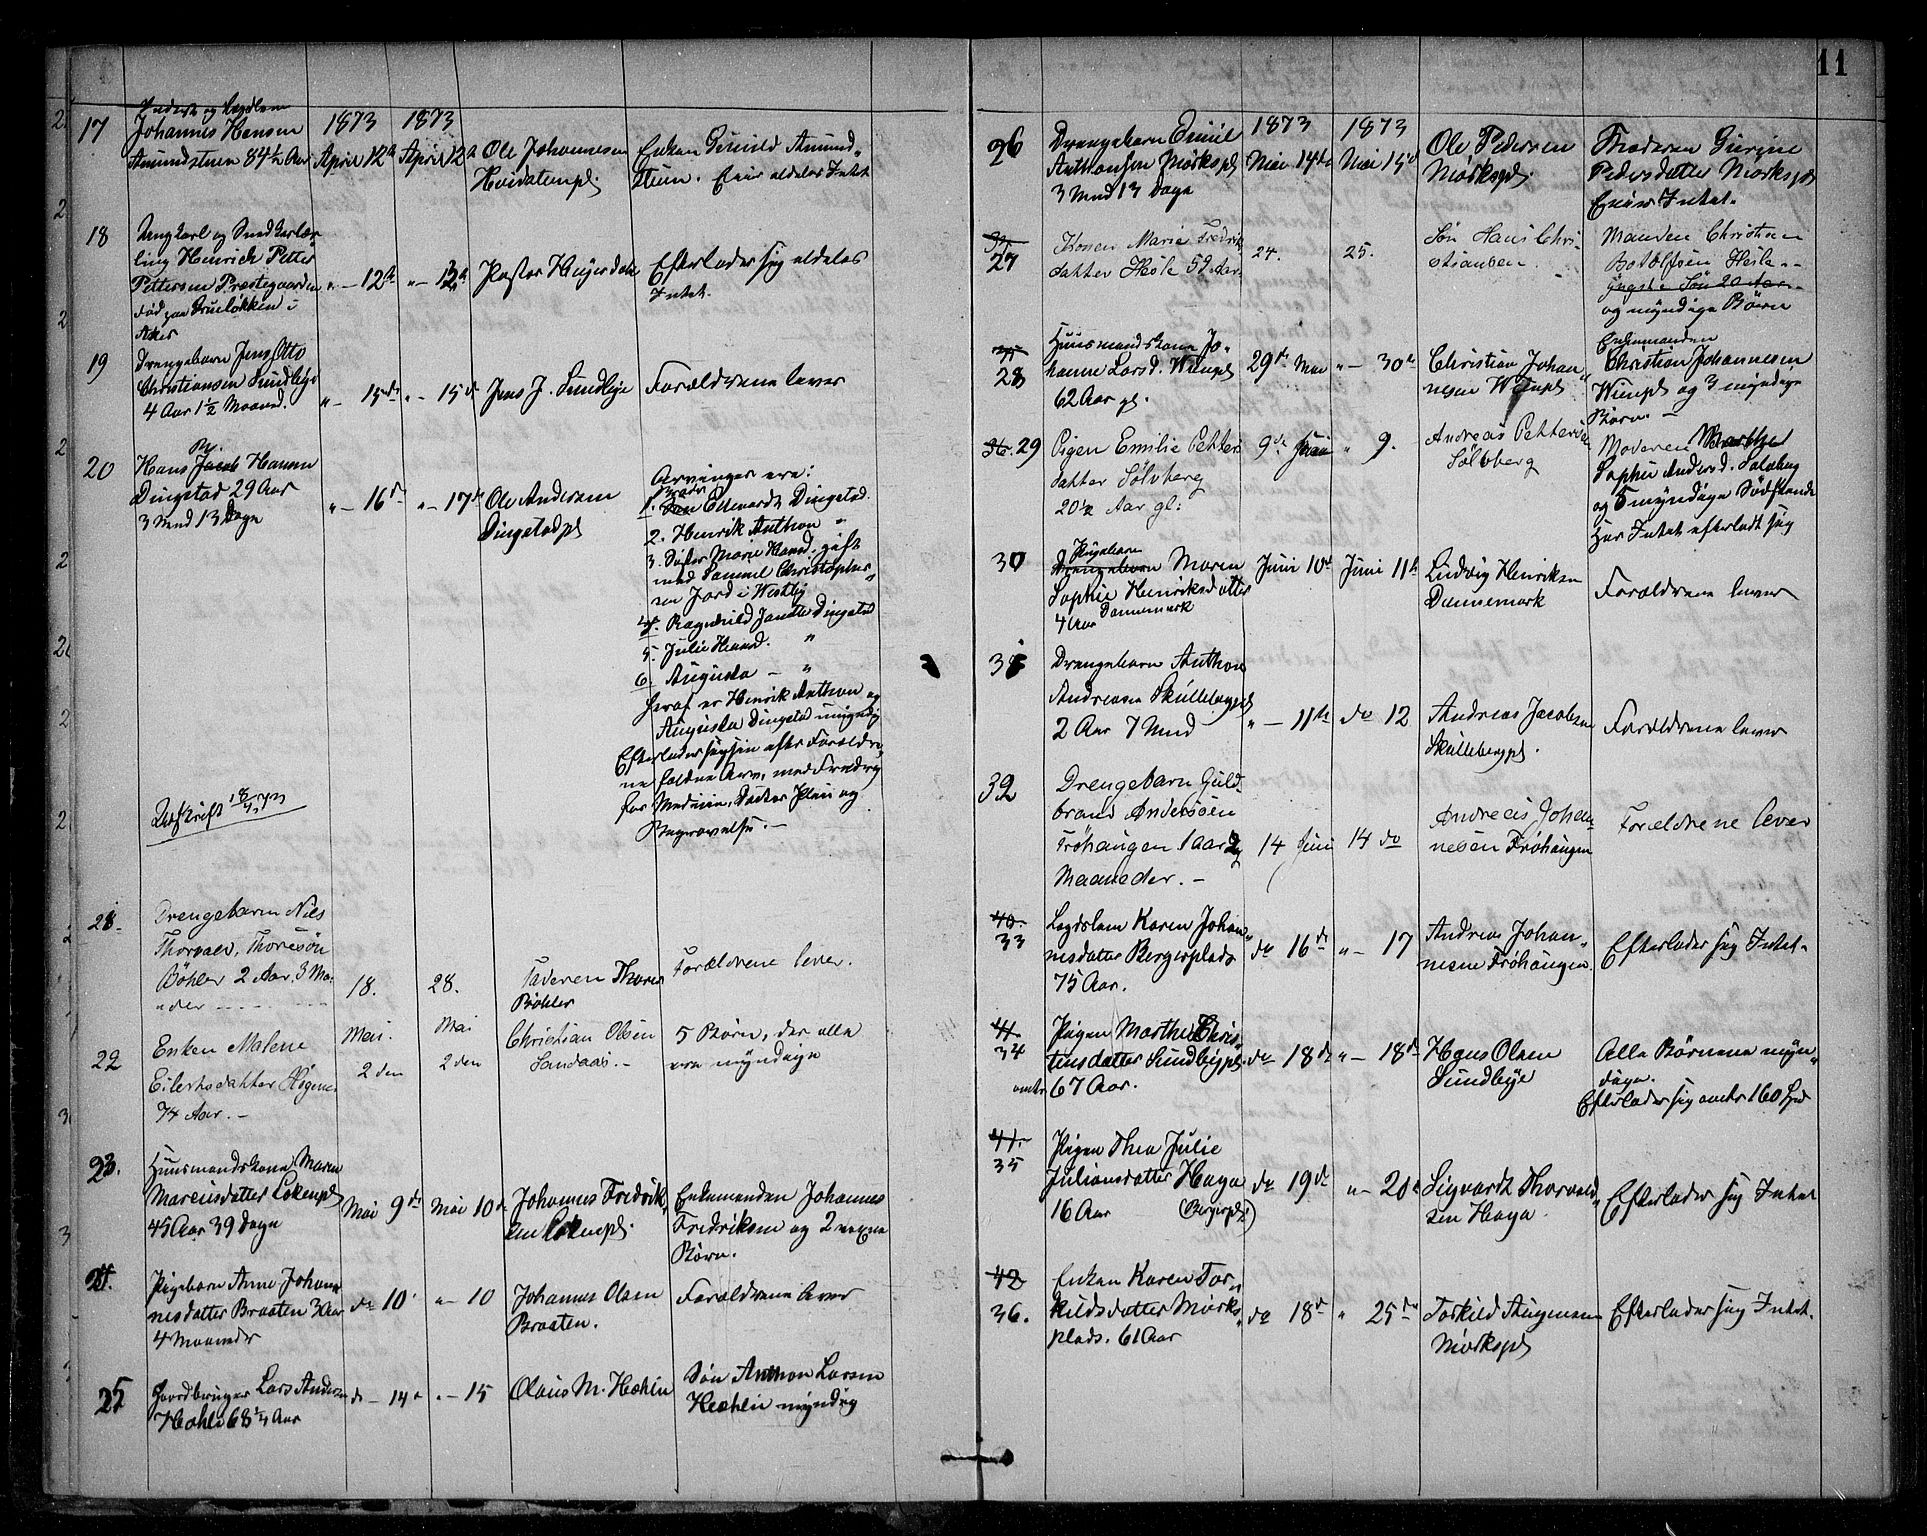 11
17
Inderst og Lægdlem
Johannes Hansen
Amundstuen 84 1/2 Aar
1873
April 12te
1873
April 12te
Ole Johannesen
Enken Gunild Amund-
stuen. Eier aldeles Intet
18
Ungkarl og Snedkerlær-
ling Henrich Petter
Pettersen Præstegaarden
født paa Grueløkken i
Aker
" - 12te
" - 13de
Efterlader sig aldeles
Intet.
19
Drengebarn Jens Otto
Christiansen Sundbye
4 Aar 1 1/2 Maaned.
" - 15de
" - 15de
Jens J. Sundbye
Forældrene lever
20
Hans Hansen
Dingstad 29 Aar
3 Mnd 13 Dage
" - 16de
" - 17de
Ole Andersen
Dingstadpl.
Arvinger ere:
Broder
1. Edevardt Dingstad.
2. Henrik Anthon "
3. Søster Marie Hansd. gift
med Samuel Christopher-
sen Jord i Westby
4. Ragnhild Janette Dingstad
5. Julie Hansd. "
6. Augusta - "
heraf er Henrik Anthon og
Augusta Dingstad umyndig
Efterlader sig sin efter Forældre-
ne faldne Arv, med Fradrag
for Medicin, Doctor Pleie og
Begravelse. -
Udskrift 18/4 73
28.
Drengebarn Nils
Thorvald Thoresøn
Bøhler 2 Aar, 3 Ma-
neder - - -
18.
28.
Faderen Thores
Bøhler
Forældrene lever.
22
Enken Malene
Eilertsdatter
74 Aar. -
Mai.
2 den
Mai
2 den
Christian Olsen
Sandaas. -
5 Børn, der alle
ere myndige
23.
Huusmandskone Maren
Marcusdatter Løkenpl.
45 Aar 39 Dage
Mai 9de
Mai 10de
Johannes Fredrik-
sen Løkenpl.
Enkemanden Johannes
Fredriksen og 2 voxne
Børn.
24.
Pigebarn Anne Johan-
nesdatter Braaten 3 Aar
4 Maaneder
do 10
" - 10
Johannes Olsen
Braaten.
Forældrene lever
25
Gaardbruger Lars Andersen
Hæhli 68 1/4 Aar
do - 14de
" - 15
Olaus M. Hæhli
Søn Anthon Larsen
Hæhli myndig
26
Drengebarn Emil
Anthonsen Mørkspl.
3 Mnd 13 Dage
1873
Mai 14de
1873
Mai 15de
Ole Pedersen
Mørkspl.
Moderen
Pedersdatter Mørkspl.
Eier Intet.
27
Konen Marie Fredrik-
datter Heśle 59 Aar.
24.
25.
Søn Hans Chri-
stiansen.
Manden Christian
yngste Søn 20 Aar
og myndige Børn
28
Huusmandskone Jo-
hanne Larsd. Wiinpl.
62 Aar gl.
29de Mai
" - 30te
Christian Johan-
nesen Wiinpl.
Enkemanden
Christian Johannesen
Wiinpl. og 3 myndige
Børn. -
36. 29
Pigen Emilie Petters
datter Sølvberg
20 1/2 Aar gl:
9de Juni
" 9.
Andreas Pettersen
Sølvberg
Moderen Marthe
Sophie Andersd. Sølvberg
og 5 myndige Sødskende
Har Intet efterladt sig
30
Pigebarn
Drengebarn Maren
Sophie Henriksdatter
4 Aar Dannemark
Juni 10de
Juni 11te
Ludvig Henriksen
Dannemark
Forældrene lever
31
Drengebarn Anthon
Andreasen Skullebergpl.
2 Aar 7 Mnd
" - 11te
do 12
Andreas Jacobsen
Skullebergpl.
Forældrene lever
32
Drengebarn Guld-
brand Anderssen
Frøhaugen 1 Aar 2
Maaneder. -
14 Juni
14 do
Andreas Johan-
nesen Frøhaugen
Forældrene lever
40.
33
Lægdslem Karen Johan-
nesdatter Bergerplads
75 Aar.
do 16de
" - 17
Andreas Johan-
nesen Frøhaugen.
Efterlader sig Intet.
41
34
Pigen Marthe Chris-
tensdatter Sundbypl.
omtr. 67 Aar.
do 18de
" - 18de
Hans Olsen
Sundbye
Alle Børnene myn-
dige.
Efterlader sig omtr 160 Spd
41.
35
Pigen Thea Julie
Juliansdatter Haga
16 Aar (Bergerpl.)
do 19de
" - 20de
Sigvardt Thorvald-
sen Haga.
Efterlader sig Intet
42
36.
Enken Karen Tor-
kildsdatter Mørks-
plads. 61 Aar
do 18de
" 25de
Torkild Augensen
Mørkspl.
Efterlader sig Intet.